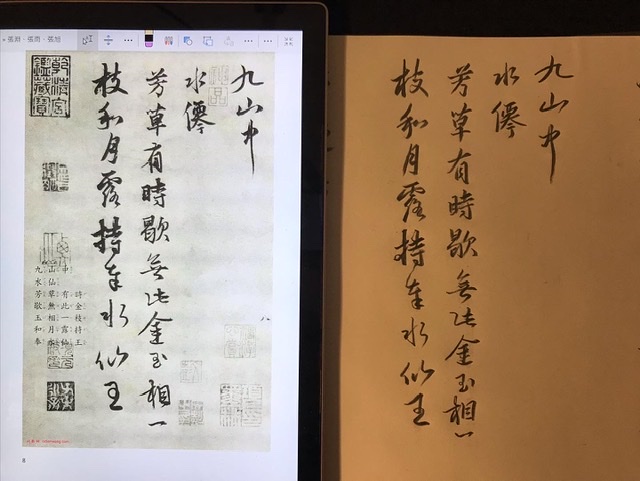 張雨・張旭
九山中
水僊
芳草有時歇無此金玉相一
枝和月露持奉水仙王
乾清宮鑑藏寶
九山中
水仙
芳草有時
歇無此金
玉相一枝
和月露持
奉水仙王
8
九山中
水僊
芳草有時歇無此金玉相一
枝和月露持奉水仙王